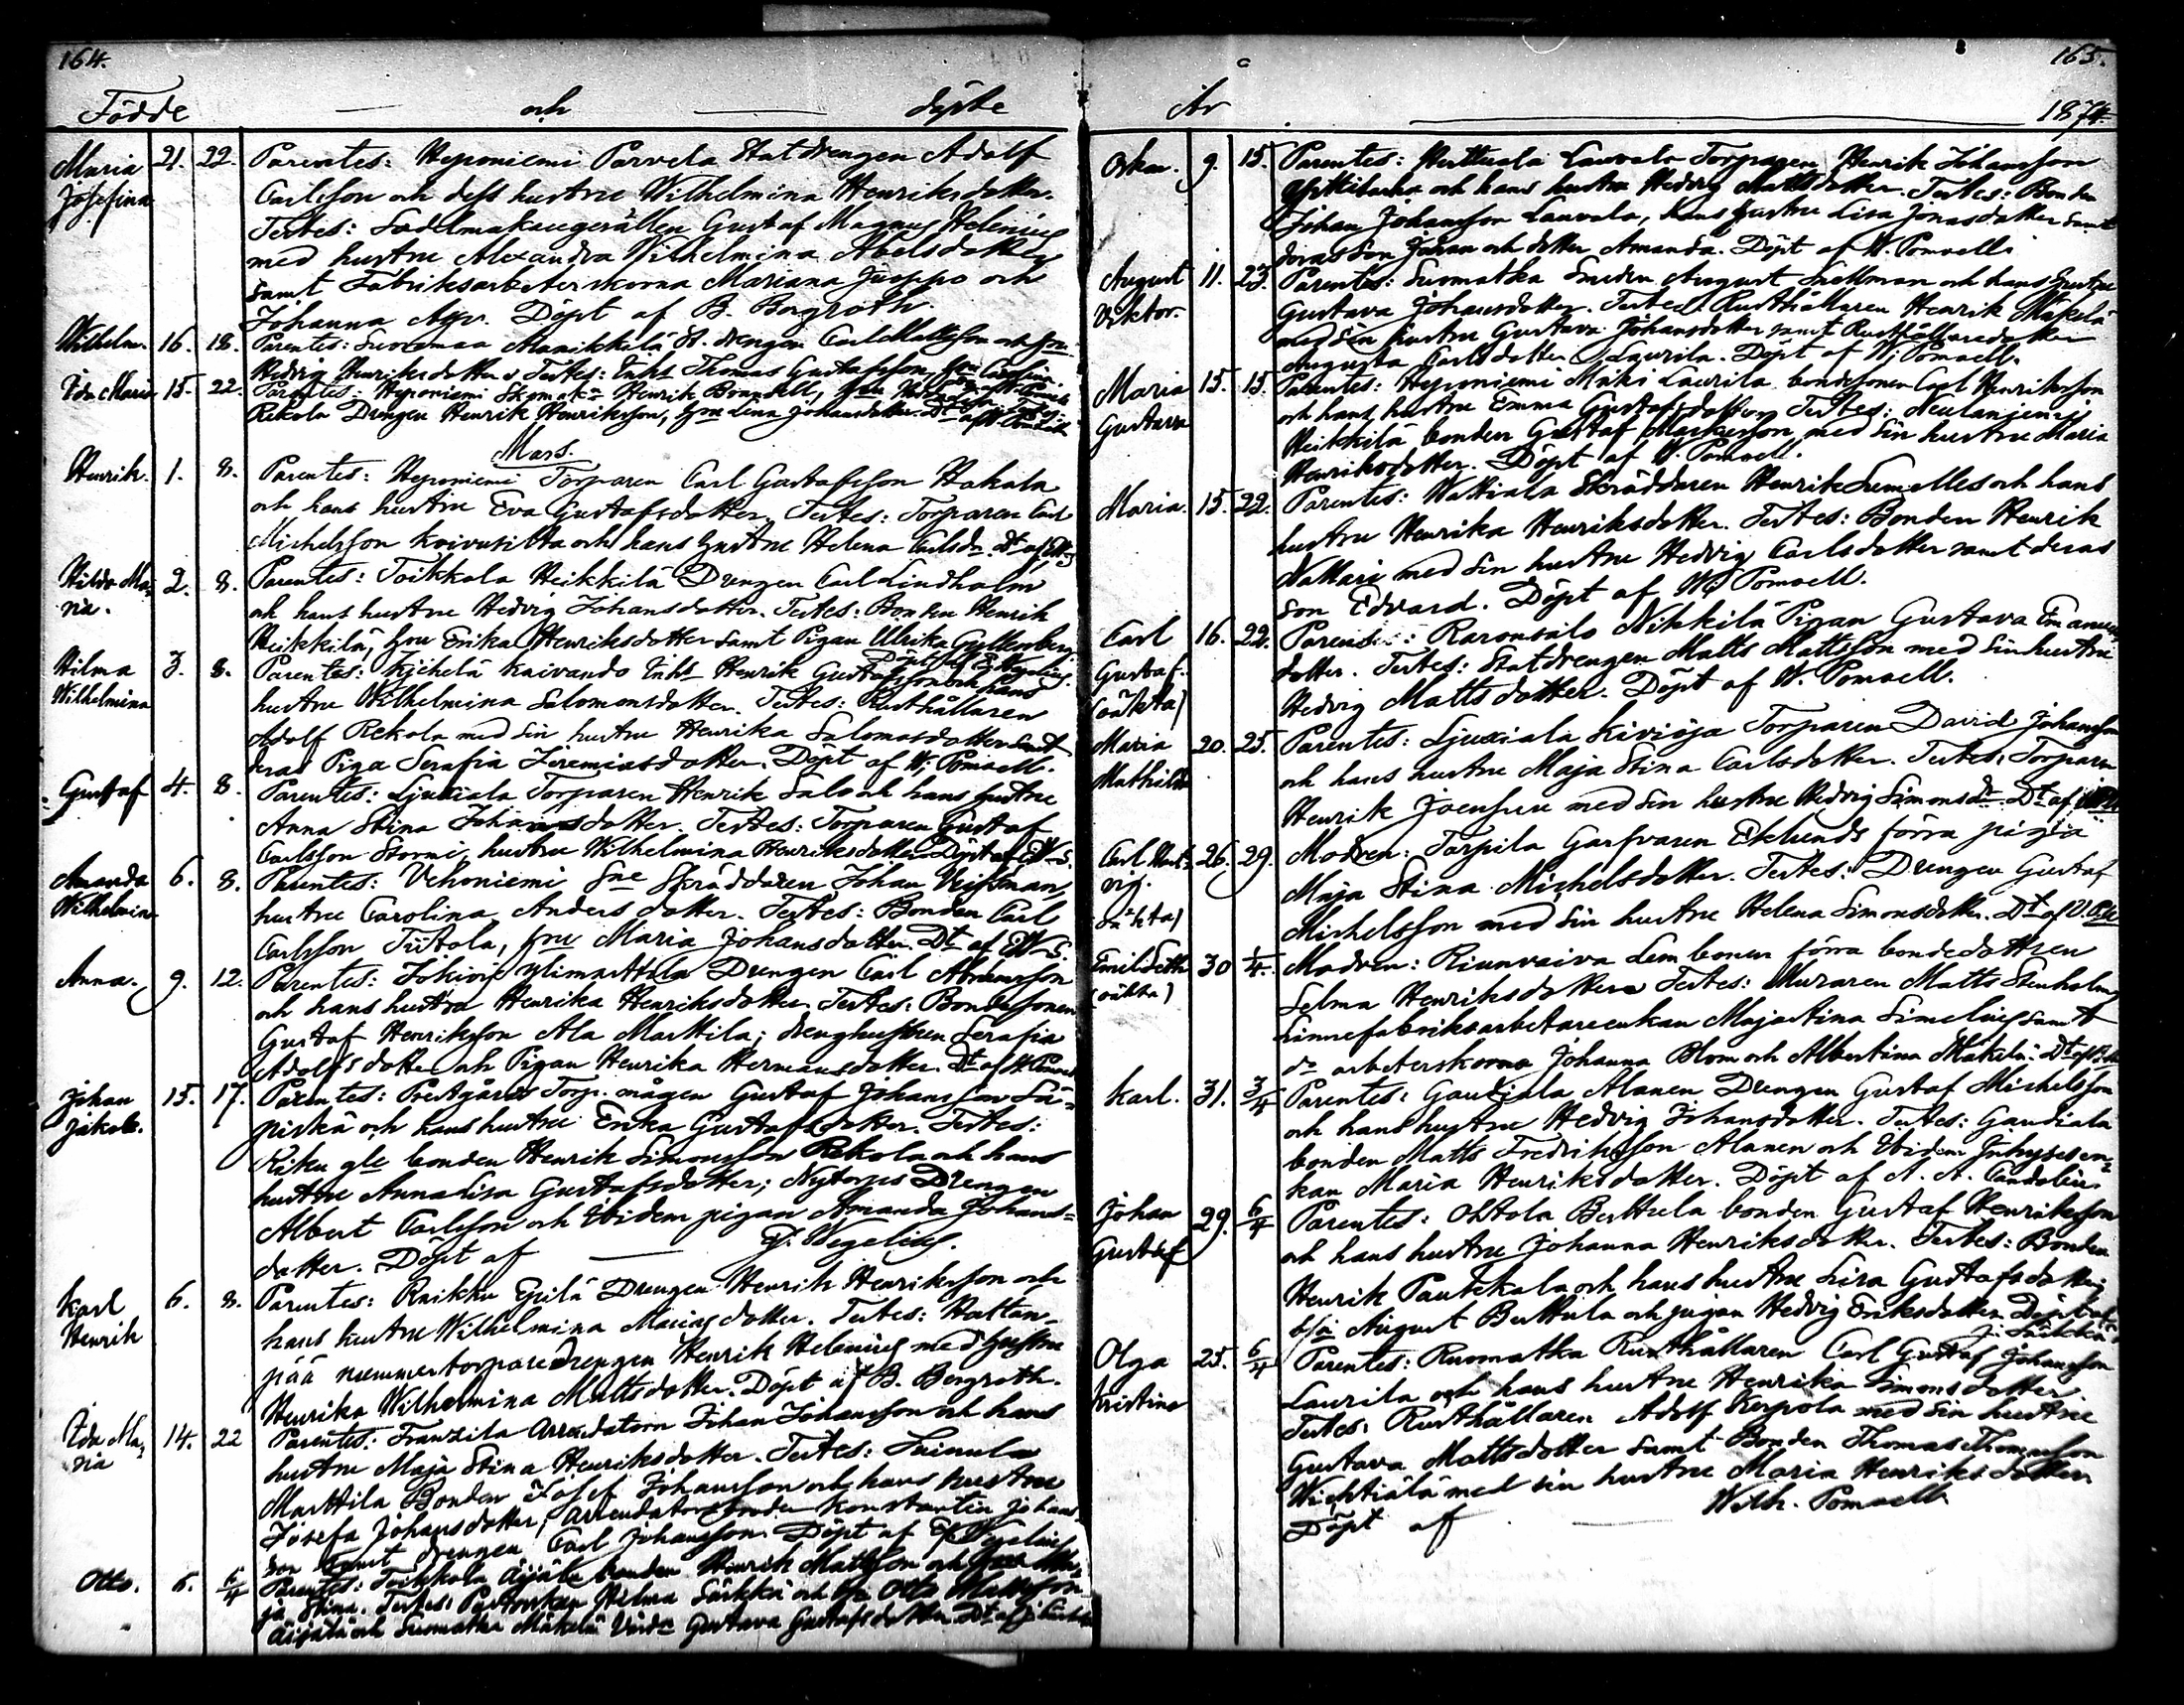 164.
Födde och döpte
Maria Josefina 21. 22. Parentes: Heponiemi Parvela Statdrengen Adolf
Carlsson och dess hustru Wilhelmina Henriksdotter.
Testes: Sadelmakaregesällen Gustaf Magnus Helenius
med hustru Alexandra Wilhelmina Abelsdotter
samt Fabriksarbeterskorna Mariana Juoppo och
Johanna Döpt af B. Bergroth.
Wilhelm. 16. 18. Parentes: Manikkala St. drengen Carl Mattsson och hru
Hedvig Henriksdotter. Testes: Inhs Thomas Gustafsson,
Ida Maria 15. 22. Parentes: Heponiemi Henrik
Rekola Drengen Henrik Henriksson, hru Lena Johansdotter.
Mars.
Henrik. 1. 8. Parentes: Heponiemi Torparen Carl Gustafsson Hakala
och hans hustru Eva Gustafsdotter. Testes: Torparen Carl
Michelsson Koivusilta och hans hustru Helena Carlsdr. Dt af
Hilda Maria. 2. 8. Parentes: Toikkola Heikkilä Drengen Carl Lindholm
och hans hustru Hedvig Johansdotter. Testes: Bonden Henrik
Heikkilä, hru Erika Henriksdotter samt Pigan Ulrika Gyllenberg
Hilma Wilhelmina 3. 8. Parentes: Kaivando Inhs Henrik Gustafsson och hans
hustru Wilhelmina Salomonsdotter. Testes: Rusthållaren
Adolf Rekola med sin hustru Henrika Salomonsdotter samt
deras Piga Serafia Jeremiasdotter. Döpt af W. Pomoell.
Gustaf 4. 8. Parentes: Ljuxiala Torparen Henrik Salo och hans hustru
Anna Stina Johansdotter. Testes: Torparen Gustaf
Carlsson Stormi, hustru Wilhelmina Henriksdotter Döpt af EW-s.
Amanda Wilhelmina 6. 8. Parentes: Vehoniemi Skräddaren Johan
hustru Carolina Andersdotter. Testes: Bonden Carl
Carlsson Tiitola, hru Maria Johansdotter. Dt af EW-s.
Anna. 9. 12. Parentes: Jokiois Ylimarttila Drengen Carl Abramsson
och hans hustru Henrika Henriksdotter. Testes: Bondesonen
Gustaf Henriksson Ala Marttila; drenghustrun Serafia
Adolfsdotter och Pigan Henrika Hermansdotter. Dt af W. Pomoell
Johan Jakob. 15. 17. Parentes: Prestgårds Torp. mågen Gustaf Johansson
och hans hustru Erika Gustafsdotter. Testes:
bonden Henrik Simonsson Rekola och hans
hustru Annalisa Gustafsdotter; Nytorps Drengen
Albert Carlsson och Ibidem pigan Amanda Johans-
dotter. Döpt af E. Wegelius.
Karl Henrik 6. 8. Parentes: Raikku Eerilä Drengen Henrik Henriksson och
hans hustru Wilhelmina Mariasdotter. Testes: Hattan-
pää nummertorparedrengen Henrik Helenius med hustru
Henrika Wilhelmina Mattsdotter. Döpt af B. Bergroth.
Ida Maria 14. 22 Parentes: Franzila Arrendatorn Johan Johansson och hans
hustru Maja Stina Henriksdotter. Testes: Suinula
Marttila Bonden Josef Johansson och hans hustru
Josefa Johansdotter; Konstantin Johans-
son samt drengen Carl Johansson. Döpt af E. Wegelius
Otto. 6. 6/4 Parentes: Toikkola Äijälä bonden Henrik Mattsson och hru Ma-
ja Stina. Testes: Pastorskan Hilma Särkkä och Otto Mattsson
Äijälä och Suomatka Mäkelä Gustava Gustafsdotter
165.
År 1874.
Oskar. 9. 15. Parentes: Herttuala Lauvala Torparen Henrik Johansson
och hans hustru Hedvig Mattsdotter. Testes: Bonden
Johan Johansson Lauvala, hans hustru Lisa Jonasdotter samt
deras son Johan och dotter Amanda. Döpt af W. Pomoell.
August Viktor. 11. 23. Parentes: Suomatka Smeden August Snellman och hans hustru
Gustava Johansdotter. Testes: Rusthållaren Henrik Mäkelä
med sin hustru Gustava Johansdotter samt Rusthållaredotter
Augusta Carlsdotter Laurila. Döpt af W. Pomoell.
Maria Gustava 15. 15. Parentes: Heponiemi Mäki Laurila bondesonen Carl Henriksson
och hans hustru Emma Gustafsdotter. Testes:
Heikkilä bonden Gustaf med sin hustru Maria
Henriksdotter. Döpt af W. Pomoell.
Maria. 15. 22. Parentes: Wattiala Skräddaren Henrik och hans
hustru Henrika Henriksdotter. Testes: Bonden Henrik
Nattari med sin hustru Hedvig Carlsdotter samt deras
son Edvard. Döpt af W. Pomoell.
Carl Gustaf. (oäkta) 16. 22. Parens: Raronsalo Nikkilä Pigan Gustava Emanuels
dotter. Testes: Statdrengen Matts Mattsson med sin hustru
Hedvig Mattsdotter. Döpt af W. Pomoell.
Maria Mathilda 20. 25. Parentes: Ljuxiala Kivioja Torparen David Johansson
och hans hustru Maja Stina Carlsdotter. Testes: Torparen
Henrik Joensuu med sin hustru Hedvig Simonsdr. Dt af
Carl (oäkta) 26. 29. Modren: Torpila Garfvaren Eklunds förra piga
Maja Stina Michelsdotter. Testes: Drengen Gustaf
Michelsson med sin hustru Helena Simonsdotter. Dt af
Emil (oäkta) 30 1/4. Modren: Riunvaiva Lembonen förra bondedottren
Selma Henriksdotter. Testes: Muraren Matts Stenholm,
Linnefabriksarbetareenkan Majastina Simelius samt
do arbeterskorna Johanna Blom och Albertina Mäkelä.
Karl. 31. 3/4 Parentes: Gaudiala Alanen Drengen Gustaf Michelsson
och hans hustru Hedvig Johansdotter. Testes: Gaudiala
bonden Matts Fredriksson Alanen och Ibidem Inhysesen-
kan Maria Henriksdotter. Döpt af A. A. Candolin.
Johan Gustaf 29. 6/4 Parentes: Ohtola Berttula bonden Gustaf Henriksson
och hans hustru Johanna Henriksdotter. Testes: Bonden
Henrik Pentkala och hans hustru Lisa Gustafsdotter,
August Berttula och pigan Hedvig Eriksdotter. Döpt af
J. Särkkä
Olga Kristina 25. 6/4 Parentes: Ruomatka Rusthållaren Carl Gustaf Johansson
Laurila och hans hustru Henrika Simonsdotter.
Testes: Rusthållaren Adolf Kerpola med sin hustru
Gustava Mattsdotter samt Bonden Thomas Thomasson
Wichtiälä med sin hustru Maria Henriksdotter.
Döpt af Wilh. Pomoell.